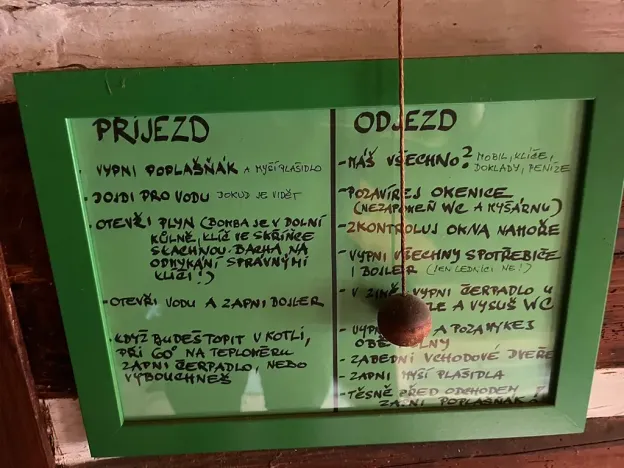 PŘÍJEZD
- VYPNI POPLAŠŇÁK A MYŠÍ PLAŠIDLO
- DOJDI PRO VODU DOKUD JE VIDĚT
- OTEVŘI PLYN (BOMBA JE V DOLNÍ
KŮLNĚ, KLÍČ VE SKŘÍŇCE
S KACHNOU. BACHA NA
ODMYKÁNÍ SPRÁVNÝMI
KLÍČI!)
- OTEVŘI VODU A ZAPNI BOJLER
- KDYŽ BUDEŠ TOPIT V KOTLI,
PŘI 60° NA TEPLOMĚRU
ZAPNI ČERPADLO, NEBO
VYBOUCHNEŠ
ODJEZD
- MÁŠ VŠECHNO? MOBIL, KLÍČE,
DOKLADY, PENÍZE
- POZAVÍREJ OKENICE
(NEZAPOMEŇ WC A KYŠÁRNU)
- ZKONTROLUJ OKNA NAHOŘE
- VYPNI VŠECHNY SPOTŘEBIČE
I BOJLER (JEN LEDNICI NE!)
- V ZIMĚ VYPNI ČERPADLO U
A VYSUŠ WC
A POZAMYKEJ
- ZABEDNI VCHODOVÉ DVEŘE
- ZAPNI MYŠÍ PLAŠIDLA
- TĚSNĚ PŘED ODCHODEM
ZAPNI POPLAŠŇÁK!